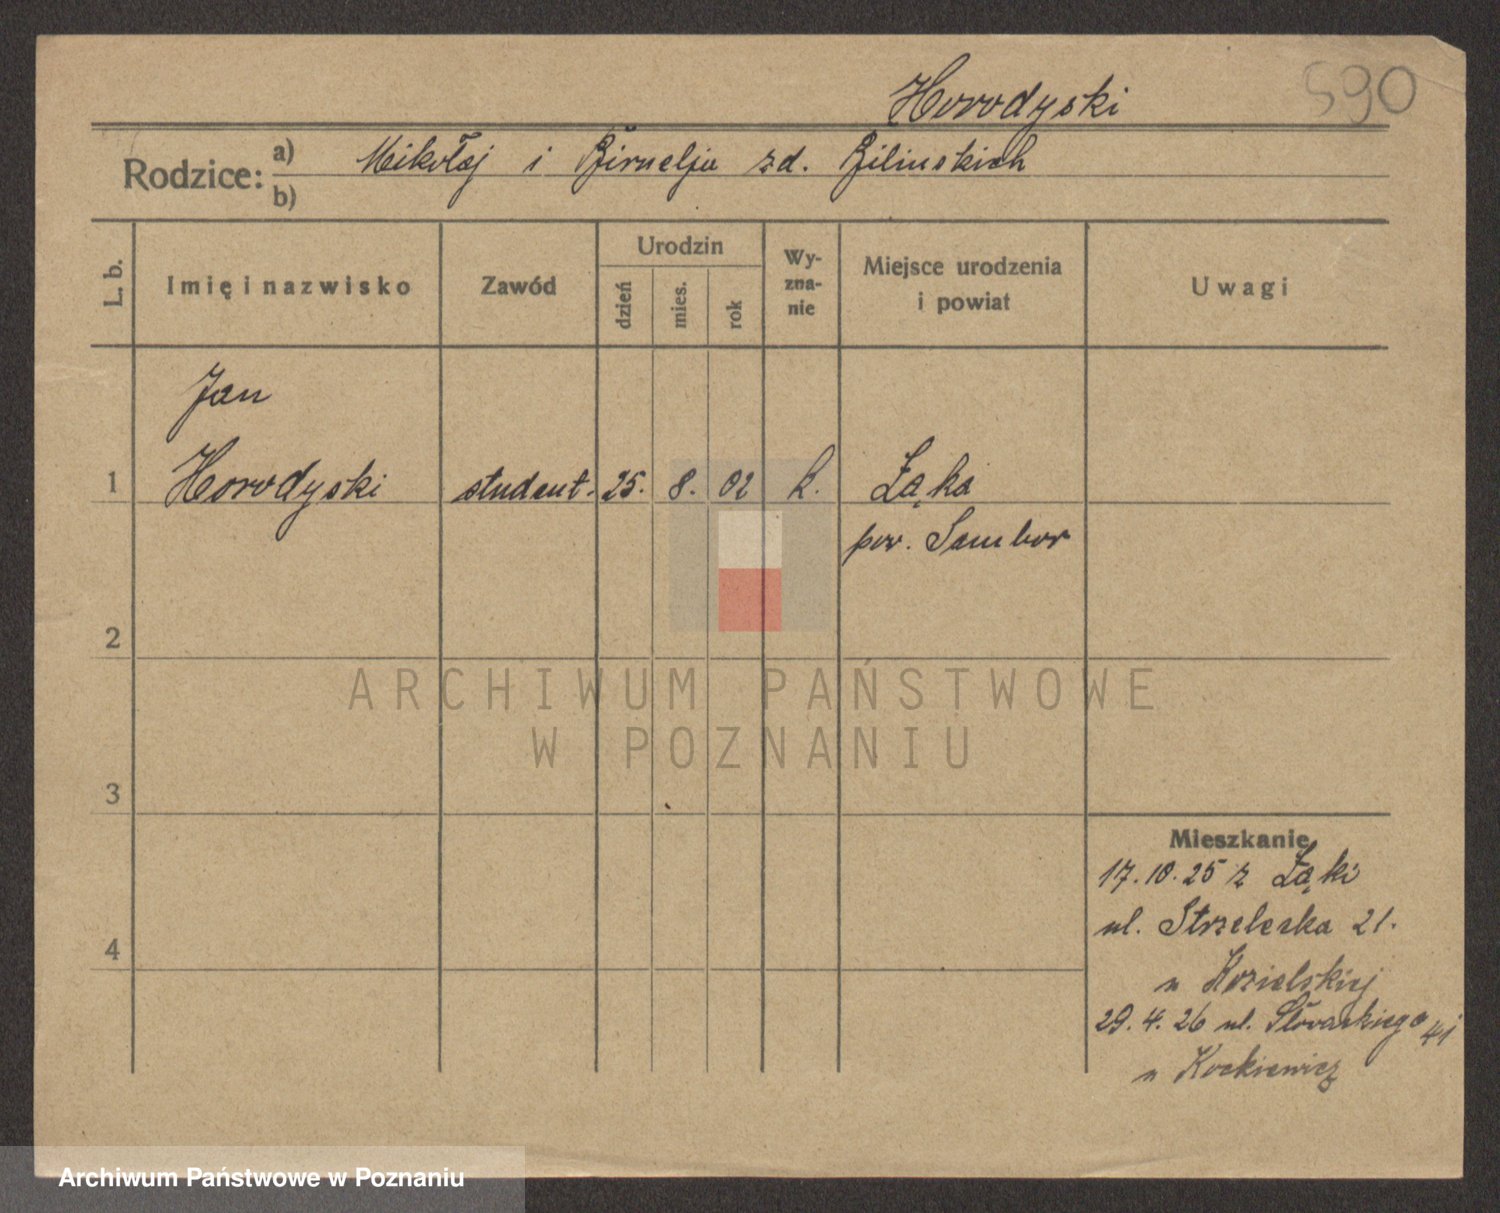 Horodyski
590
Rodzice: a) Mikołaj i zd. Bilinskich
b)
L. b.
Imię i nazwisko
Zawód
Urodzin
dzień
mies.
rok
Wy-
zna-
nie
Miejsce urodzenia
i powiat
Uwagi
Jan
1 Horodyski student. 25. 8. 02 k. Łąka
pow. Sambor
2
3
4
Mieszkanie
17.10.25 z Łąki
ul. Strzelecka 21.
u Kozielskiej
29.4.26 ul. Słowackiego 41
u
ARCHIWUM PAŃSTWOWE
W POZNANIU
Archiwum Państwowe w Poznaniu